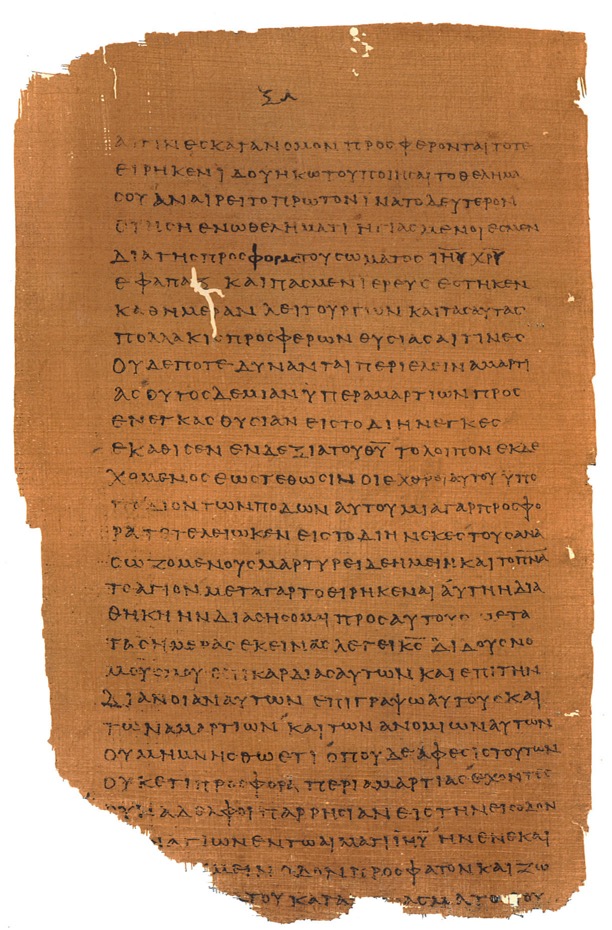 ΞΑ
ΑΙΤΙΝΕϹ ΚΑΤΑ ΝΟΜΟΝ ΠΡΟϹΦΕΡΟΝΤΑΙ ΤΟΤΕ
ΕΙΡΗΚΕΝ ΙΔΟΥ ΗΚΩ ΤΟΥ ΠΟΙΗϹΑΙ ΤΟ ΘΕΛΗΜΑ
ϹΟΥ ΑΝΑΙΡΕΙ ΤΟ ΠΡΩΤΟΝ ΙΝΑ ΤΟ ΔΕΥΤΕΡΟΝ
ϹΤΗϹΗ ΕΝ Ω ΘΕΛΗΜΑΤΙ ΗΓΙΑϹΜΕΝΟΙ ΕϹΜΕΝ
ΔΙΑ ΤΗϹ ΠΡΟϹΦΟΡΑϹ ΤΟΥ ϹΩΜΑΤΟϹ Ι̅Η̅Υ̅ Χ̅Ρ̅Υ̅
ΕΦΑΠΑΞ ΚΑΙ ΠΑϹ ΜΕΝ ΙΕΡΕΥϹ ΕϹΤΗΚΕΝ
ΚΑΘ ΗΜΕΡΑΝ ΛΕΙΤΟΥΡΓΩΝ ΚΑΙ ΤΑϹ ΑΥΤΑϹ
ΠΟΛΛΑΚΙϹ ΠΡΟϹΦΕΡΩΝ ΘΥϹΙΑϹ ΑΙΤΙΝΕϹ
ΟΥΔΕΠΟΤΕ ΔΥΝΑΝΤΑΙ ΠΕΡΙΕΛΕΙΝ ΑΜΑΡΤΙ
ΑϹ ΟΥΤΟϹ ΔΕ ΜΙΑΝ ΥΠΕΡ ΑΜΑΡΤΙΩΝ ΠΡΟϹ
ΕΝΕΓΚΑϹ ΘΥϹΙΑΝ ΕΙϹ ΤΟ ΔΙΗΝΕΓΚΕϹ
ΕΚΑΘΙϹΕΝ ΕΝ ΔΕΞΙΑ ΤΟΥ Θ̅Υ̅ ΤΟ ΛΟΙΠΟΝ ΕΚΔΕ
ΧΟΜΕΝΟϹ ΕΩϹ ΤΕΘΩϹΙΝ ΟΙ ΕΧΘΡΟΙ ΑΥΤΟΥ ΥΠΟ
ΠΟΔΙΟΝ ΤΩΝ ΠΟΔΩΝ ΑΥΤΟΥ ΜΙΑ ΓΑΡ ΠΡΟϹΦΟ
ΡΑ ΤΕΤΕΛΕΙΩΚΕΝ ΕΙϹ ΤΟ ΔΙΗΝΕΚΕϹ ΤΟΥϹ ΑΝΑ
ϹΩΖΟΜΕΝΟΥϹ ΜΑΡΤΥΡΕΙ ΔΕ ΗΜΕΙΝ ΚΑΙ ΤΟ Π̅Ν̅Α̅
ΤΟ ΑΓΙΟΝ ΜΕΤΑ ΓΑΡ ΤΟ ΕΙΡΗΚΕΝΑΙ ΑΥΤΗ Η ΔΙΑ
ΘΗΚΗ ΗΝ ΔΙΑΘΗϹΟΜΑΙ ΠΡΟϹ ΑΥΤΟΥϹ ΜΕΤΑ
ΤΑϹ ΗΜΕΡΑϹ ΕΚΕΙΝΑϹ ΛΕΓΕΙ Κ̅Ϲ̅ ΔΙΔΟΥϹ ΝΟ
ΜΟΥϹ ΜΟΥ ΕΠΙ ΚΑΡΔΙΑϹ ΑΥΤΩΝ ΚΑΙ ΕΠΙ ΤΗΝ
ΔΙΑΝΟΙΑΝ ΑΥΤΩΝ ΕΠΙΓΡΑΨΩ ΑΥΤΟΥϹ ΚΑΙ
ΤΩΝ ΑΜΑΡΤΙΩΝ ΚΑΙ ΤΩΝ ΑΝΟΜΙΩΝ ΑΥΤΩΝ
ΟΥ ΜΗ ΜΝΗϹΘΩ ΕΤΙ ΟΠΟΥ ΔΕ ΑΦΕϹΙϹ ΤΟΥΤΩΝ
ΟΥΚΕΤΙ ΠΡΟϹΦΟΡΑ ΠΕΡΙ ΑΜΑΡΤΙΑϹ ΕΧΟΝΤΕϹ
ΟΥΝ ΑΔΕΛΦΟΙ ΠΑΡΡΗϹΙΑΝ ΕΙϹ ΤΗΝ ΕΙϹΟΔΟΝ
ΑΓΙΩΝ ΕΝ ΤΩ ΑΙΜΑΤΙ Ι̅Η̅Υ̅ ΗΝ ΕΝΕΚΑΙ
ΜΕΙΝ ΟΔΟΝ ΠΡΟϹΦΑΤΟΝ ΚΑΙ ΖΩ
ΤΟΥ ΚΑΤΑ ΑϹΜΑΤΟϹ ΤΟΥ